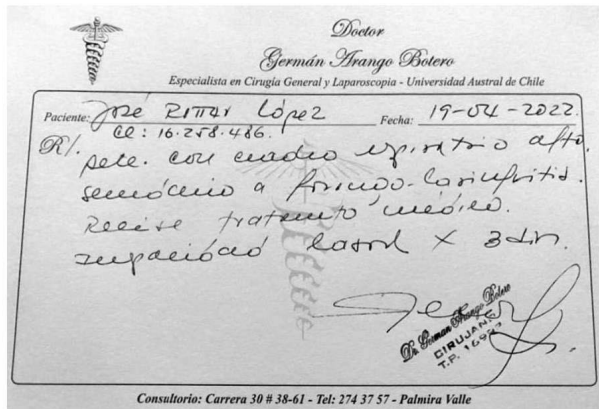 Doctor
Germán Arango Botero
Especialista en Cirugía General y Laparoscopia - Universidad Austral de Chile
Paciente: José López Fecha: 19-04-2022
CC: 16.258.486.
R/. pcte. con cuadro alto.
a
Recibe tratamiento médico.
laboral x 3 días.
Dr. German Arango Botero
CIRUJANO
T.P.
Consultorio: Carrera 30 # 38-61 - Tel: 274 37 57 - Palmira Valle